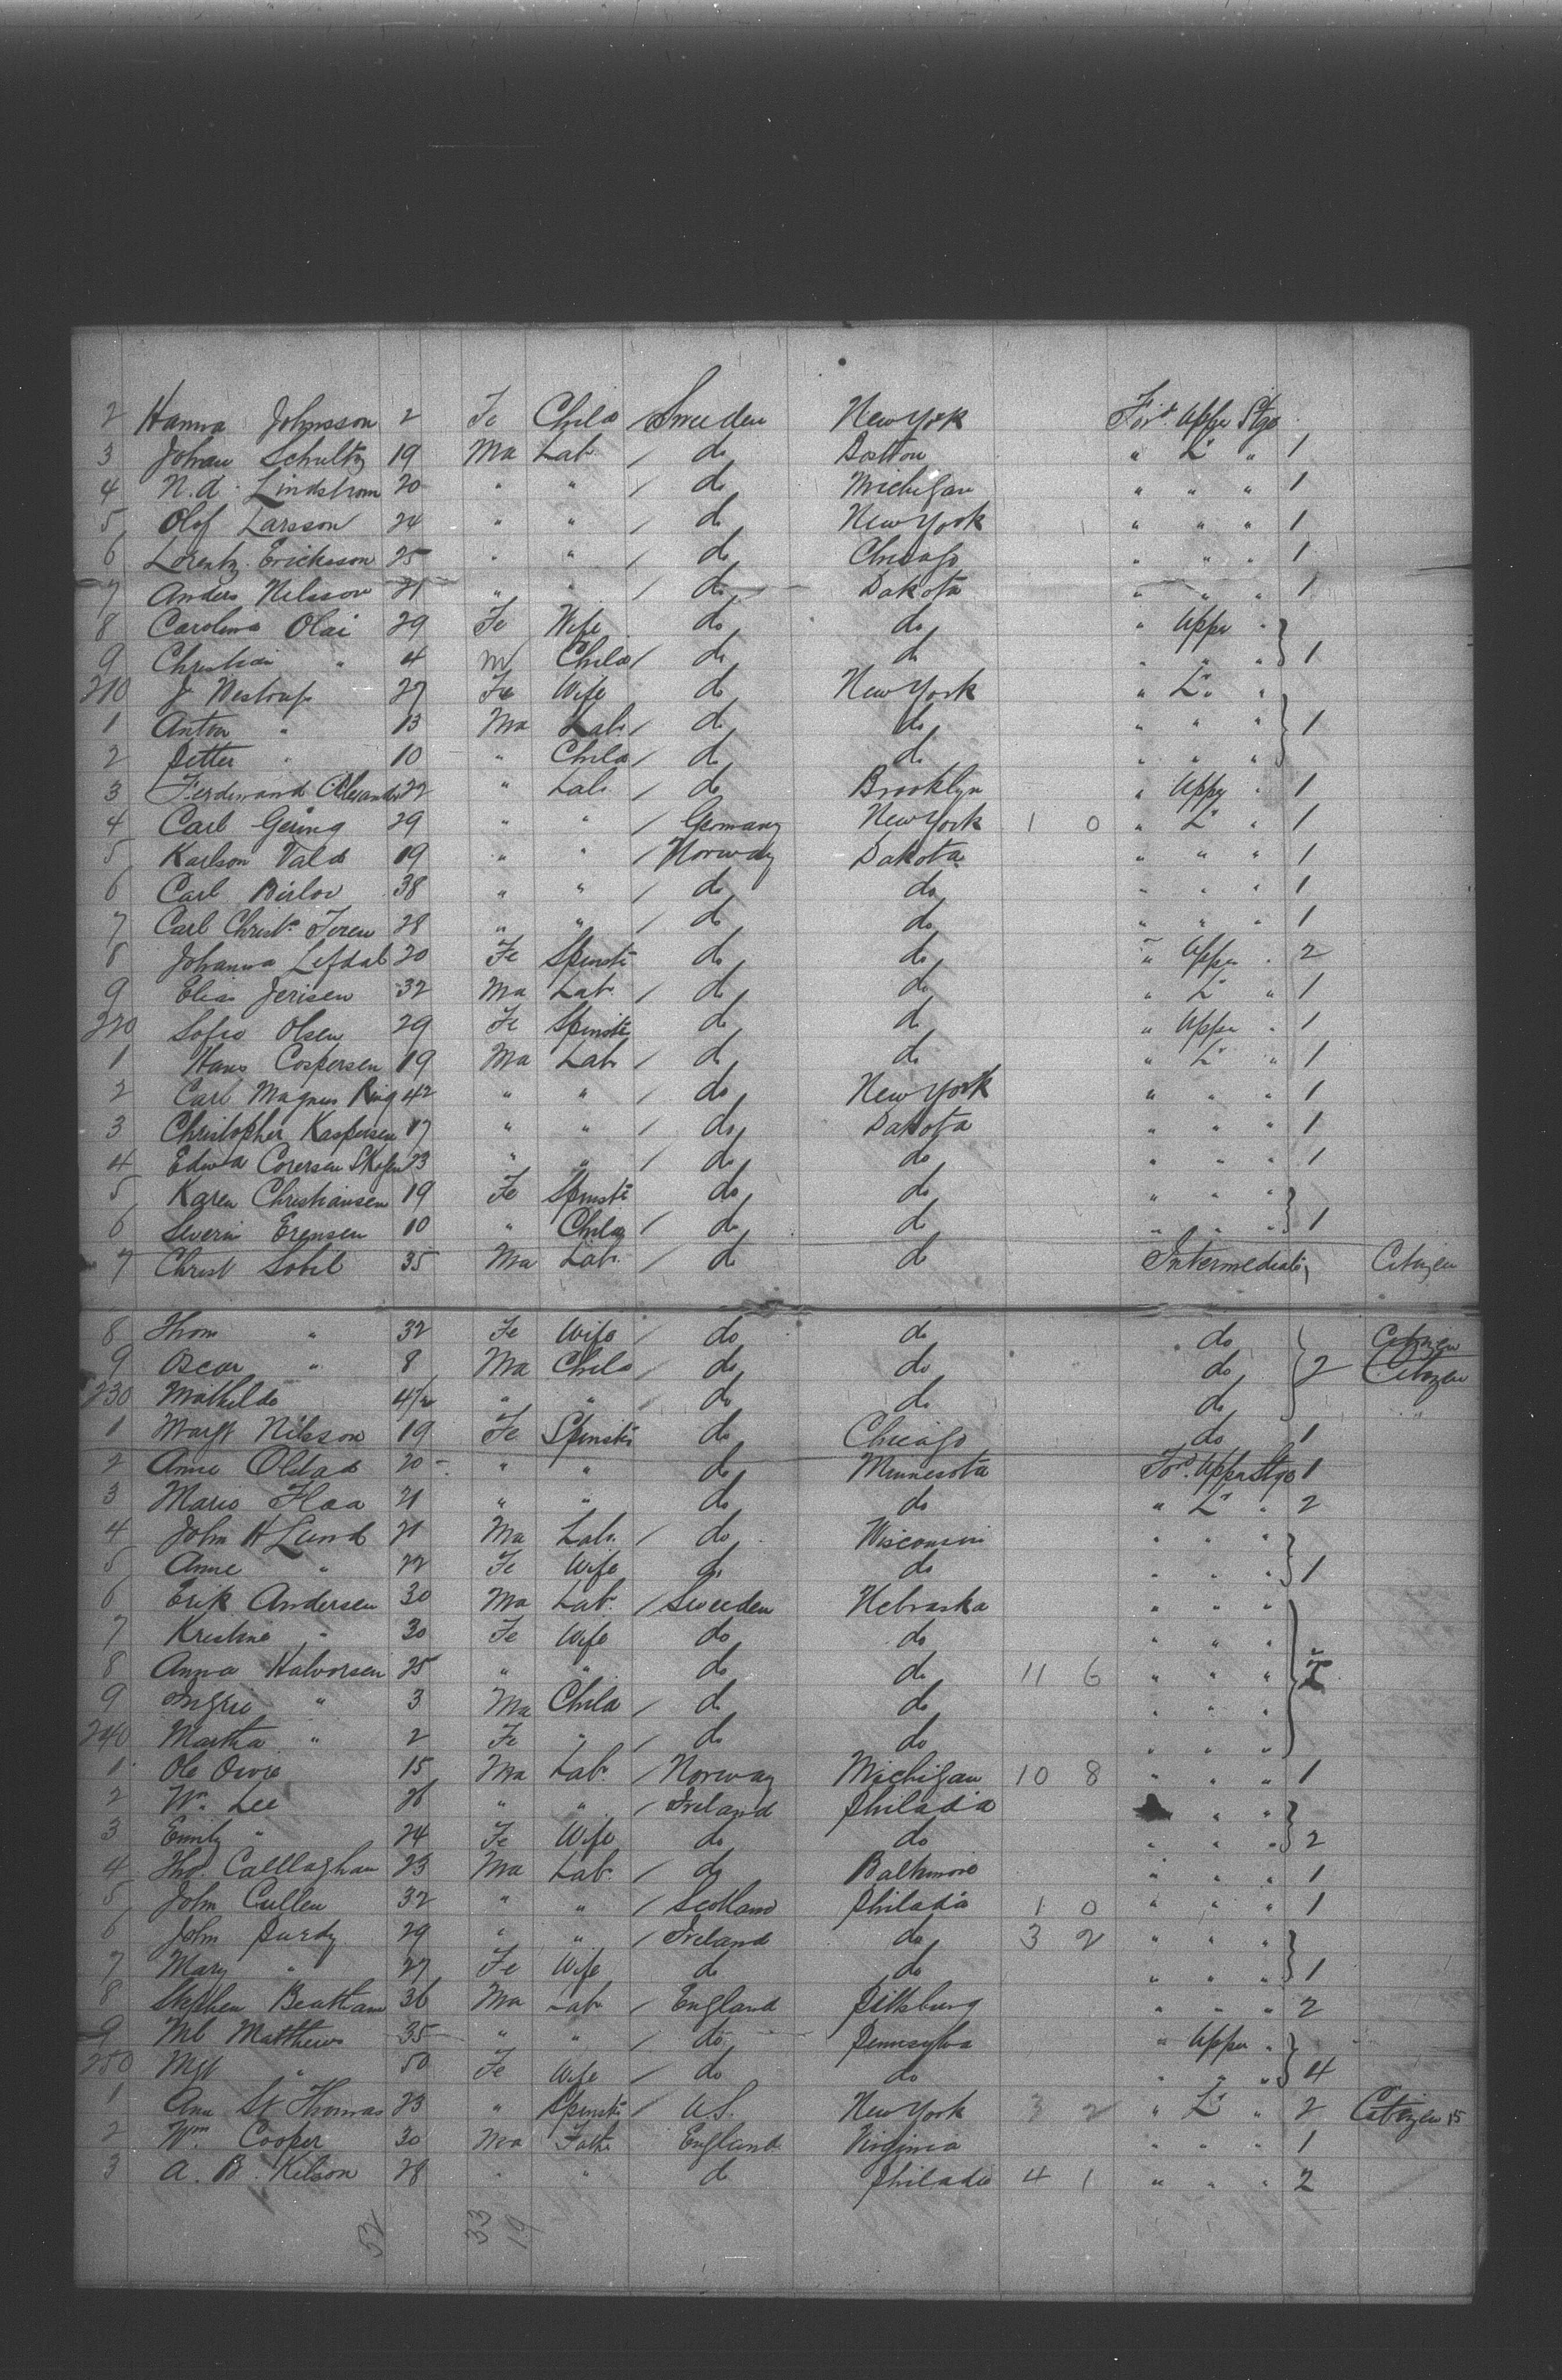 2 Hanna Johnsson 2 Fe Child / Sweeden New York For'd Upper Stge
3 Johan Schultz 19 Ma Lab. / do Boston " L'r " 1
4 N. A. Lindstrom 20 " " / do Michigan " " " 1
5 Olof Larsson 24 " " / do New York " " " 1
6 Lorentz Ericksson 25 " " / do Chicago " " " 1
7 Anders Nilsson 21 " " / do Dakota " " " 1
8 Carolina Olai 29 Fe Wife do do " Upper "
9 Christian " 4 m Child / do do " " " 1
210 J Westrup 27 Fe Wife do New York " L'r "
1 Anton " 13 Ma Lab. / do do " " " 1
2 Petter " 10 " Child / do do " " "
3 Ferdinand Alexander 22 " Lab. / do Brooklyn " Upper " 1
4 Carl Gering 29 " " / Germany New York 1 0 " L'r " 1
5 Karlson Vald 19 " " / Norway Dakota " " " 1
6 Carl 38 " " / do do " " " 1
7 Carl Christ. 28 " " / do do " " " 1
8 Johanna Lefdal 20 Fe Spinstr do do " Upper " 2
9 Elias Jerisen 32 Ma Lab. / do do " L'r " 1
220 Sofie Olsen 29 Fe Spinstr do do " Upper " 1
1 Hans Cospersen 19 Ma Lab. / do do " L'r " 1
2 Carl Magnus Ring 42 " " / do New York " " " 1
3 Christopher Kaspersen 17 " " / do Dakota " " " 1
4 Edwd 23 " " / do do " " " 1
5 Karen Christiansen 19 Fe Spinstr do do " " "
6 Severin Erensen 10 " Child / do do " " " 1
7 Christ Sobil 35 Ma Lab. / do do Intermediate Citizen
8 Thom " 32 Fe Wife / do do do Citizen
9 Oscar " 8 Ma Child / do do do 2 Citizen
230 Mathilde 4/12 " " / do do do "
1 Margt Nilsson 19 Fe Spinstr do Chicago do 1
2 Anne Olstad 20 " " do Minnesota For'd Upper Stge 1
3 Marie Flaa 21 " " do do " L'r " 2
4 John H Lund 21 Ma Lab. / do Wisconsin " " "
5 Anne " 22 Fe Wife do do " " " 1
6 Erik Andersen 30 Ma Lab. / Sweeden Nebraska " " "
7 Kristine " 30 Fe Wife do do " " "
8 Anna Halvorsen 25 " " do do 11 6 " " " 2
9 Ingrie " 3 Ma Child / do do " " "
240 Martha " 2 Fe " / do do " " "
1 Ole Ovrie 15 Ma Lab. / Norway Michigan 10 8 " " " 1
2 Wm. Lee 26 " " / Ireland Philada " "
3 Emily " 24 Fe Wife do do " " " 2
4 Thos. Calllaghan 23 Ma Lab. / do Baltimore " " " 1
5 John Cullen 32 " " / Scotland Philada 1 0 " " " 1
6 John Purdy 29 " " / Ireland do 3 2 " " "
7 Mary " 27 Fe Wife do do " " " 1
8 Stephen Beatham 36 Ma Lab. / England Pittsburg " " " 2
9 Ml Matthews 35 " " / do Pennsylva " Upper "
250 Mgt " 50 Fe Wife / do do " " " 4
1 Ann St Thomas 23 " Spinstr / U.S. New York 3 2 " L'r " 2 Citizen 15
2 Wm. Cooper 30 Ma England Virginia " " " 1
3 A. B. Kilson 28 " " do Philada 4 1 " " " 2
52 33 19